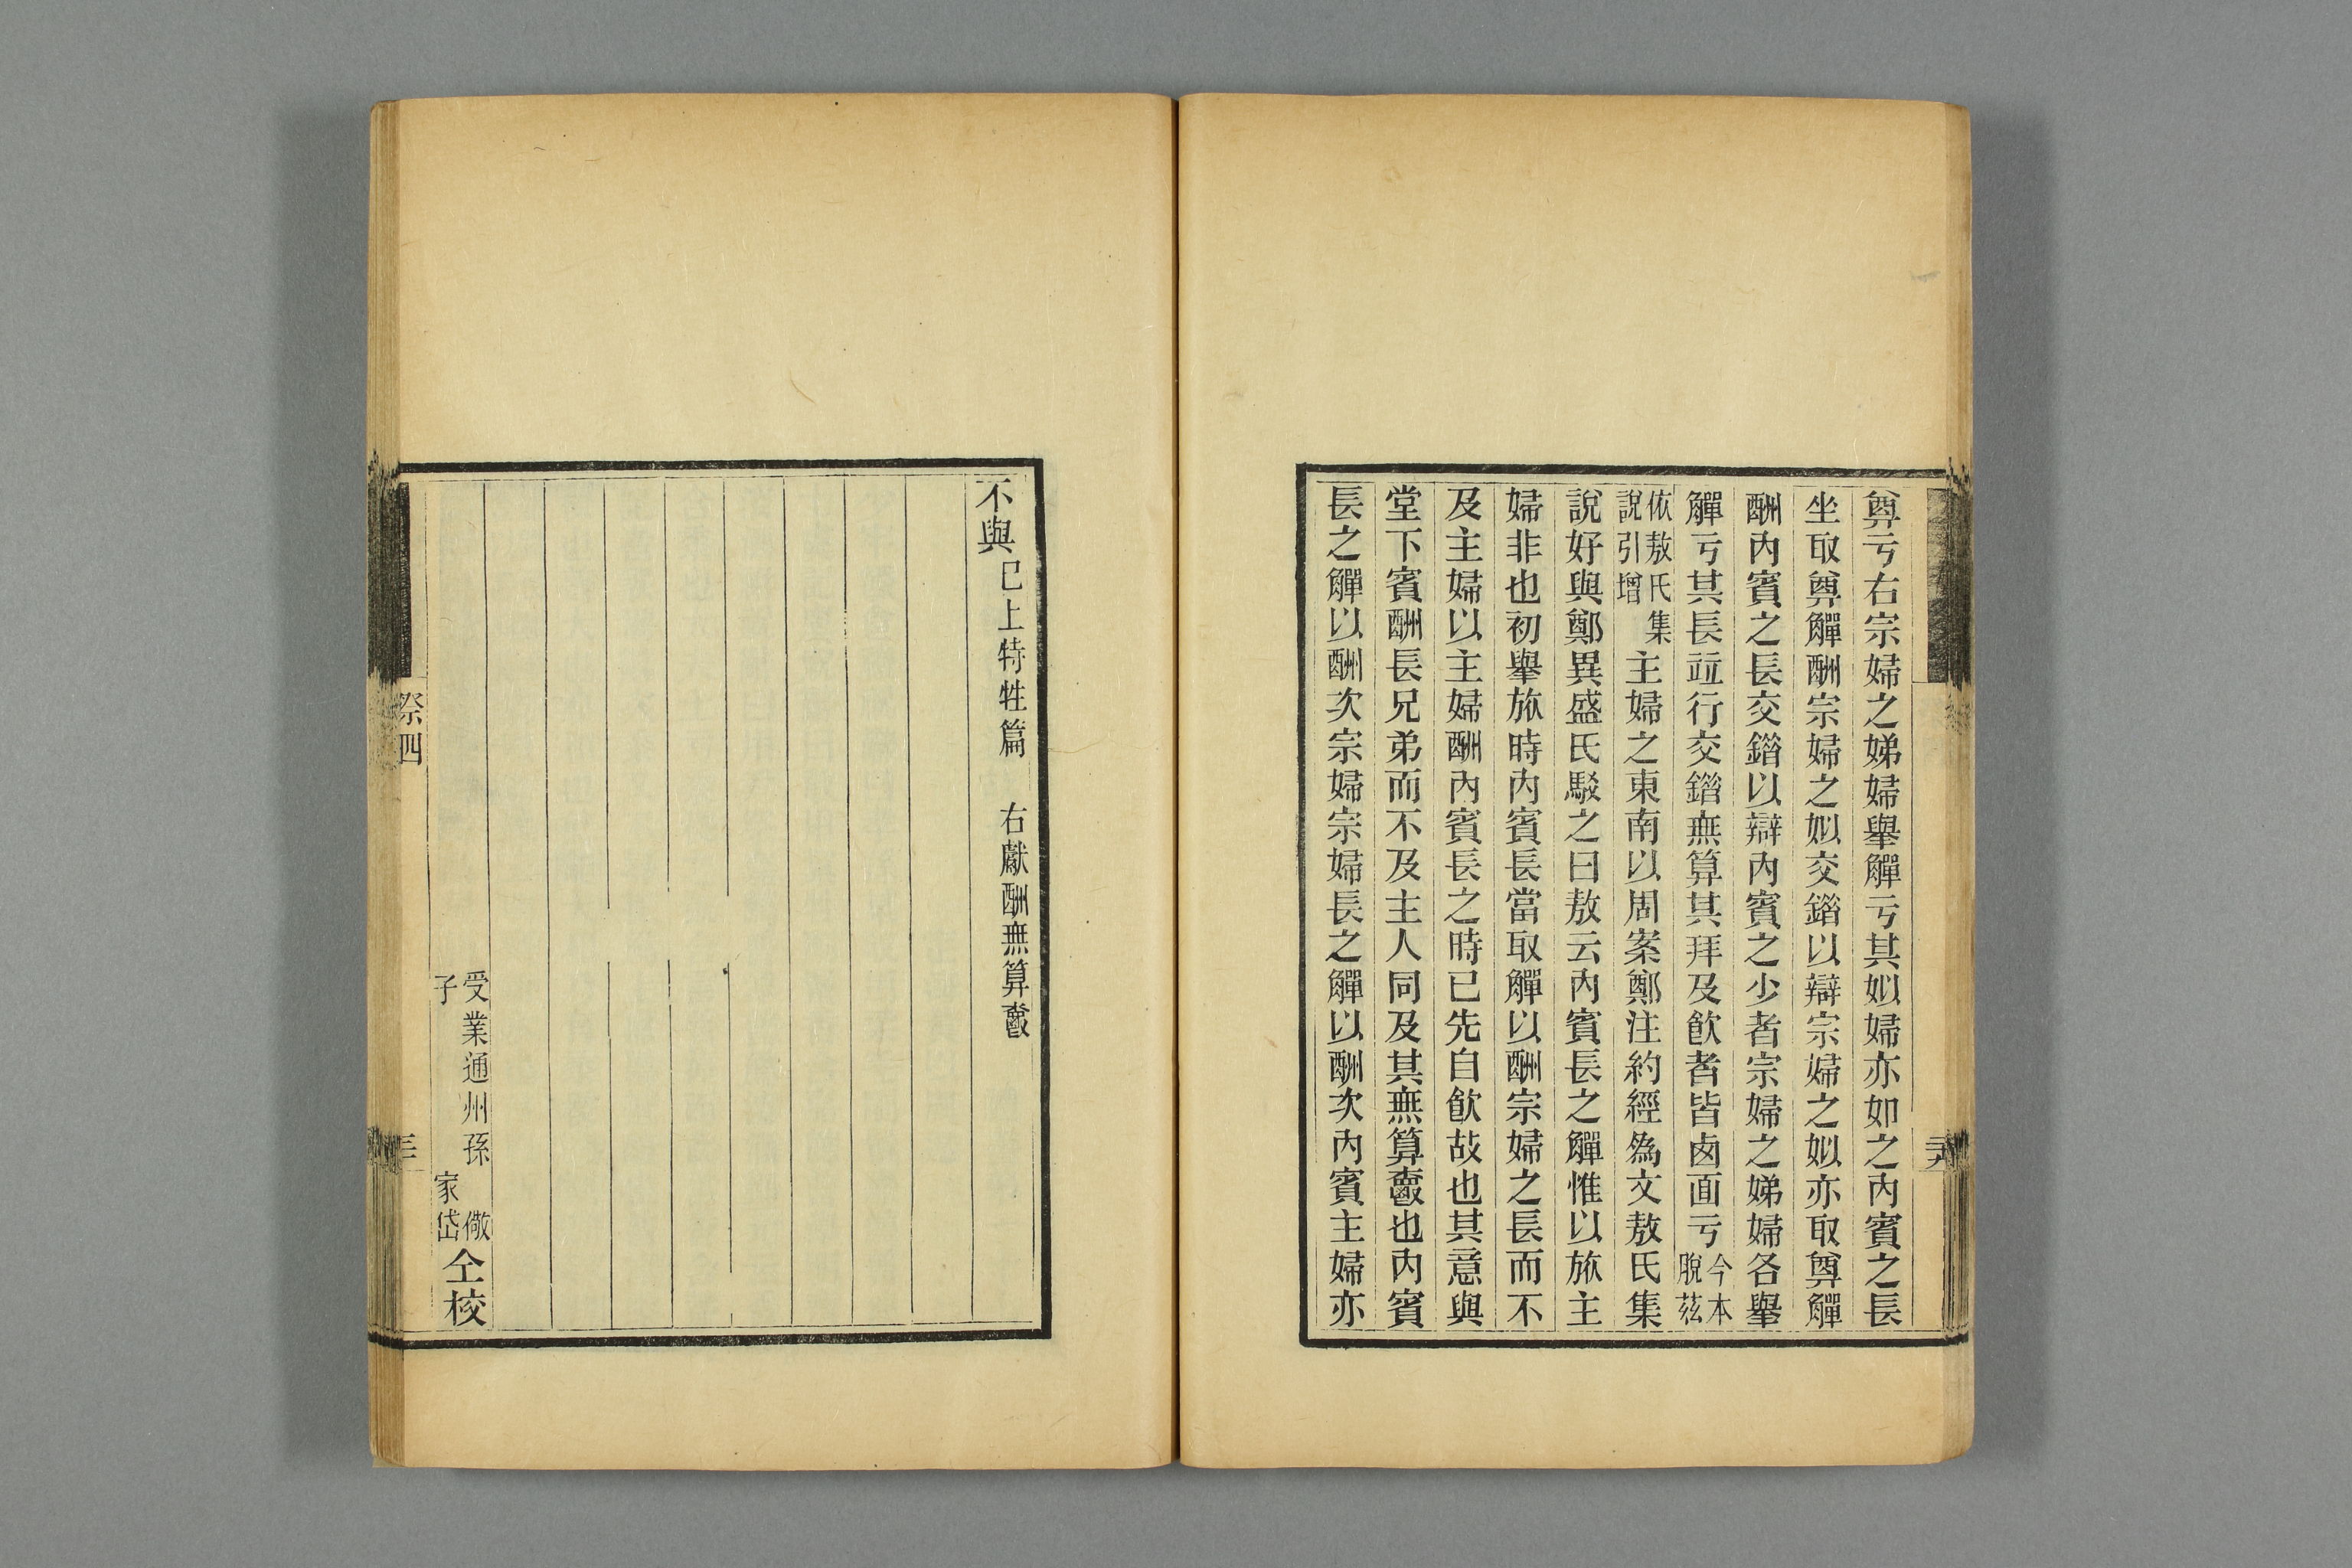 尊亏右宗婦之娣婦舉觶亏其姒婦亦如之內賓之長
坐取尊觶酬宗婦之姒交錯以辯宗婦之姒亦取尊觶
酬內賓之長交錯以辯內賓之少者宗婦之娣婦各舉
觶亏其長竝行交錯無算其拜及飮者皆鹵面亏今本脫茲
依敖氏集說引增主婦之東南以周案鄭注約經爲文敖氏集
說好與鄭異盛氏駁之曰敖云內賓長之觶惟以旅主
婦非也初舉旅時內賓長當取觶以酬宗婦之長而不
及主婦以主婦酬內賓長之時已先自飮故也其意與
堂下賓酬長兄弟而不及主人同及其無算𣝣也內賓
長之觶以酬次宗婦宗婦長之觶以酬次內賓主婦亦
不與已上特牲篇 右獻酬無算𣝣
受業通州孫儆
子家岱仝校
祭四